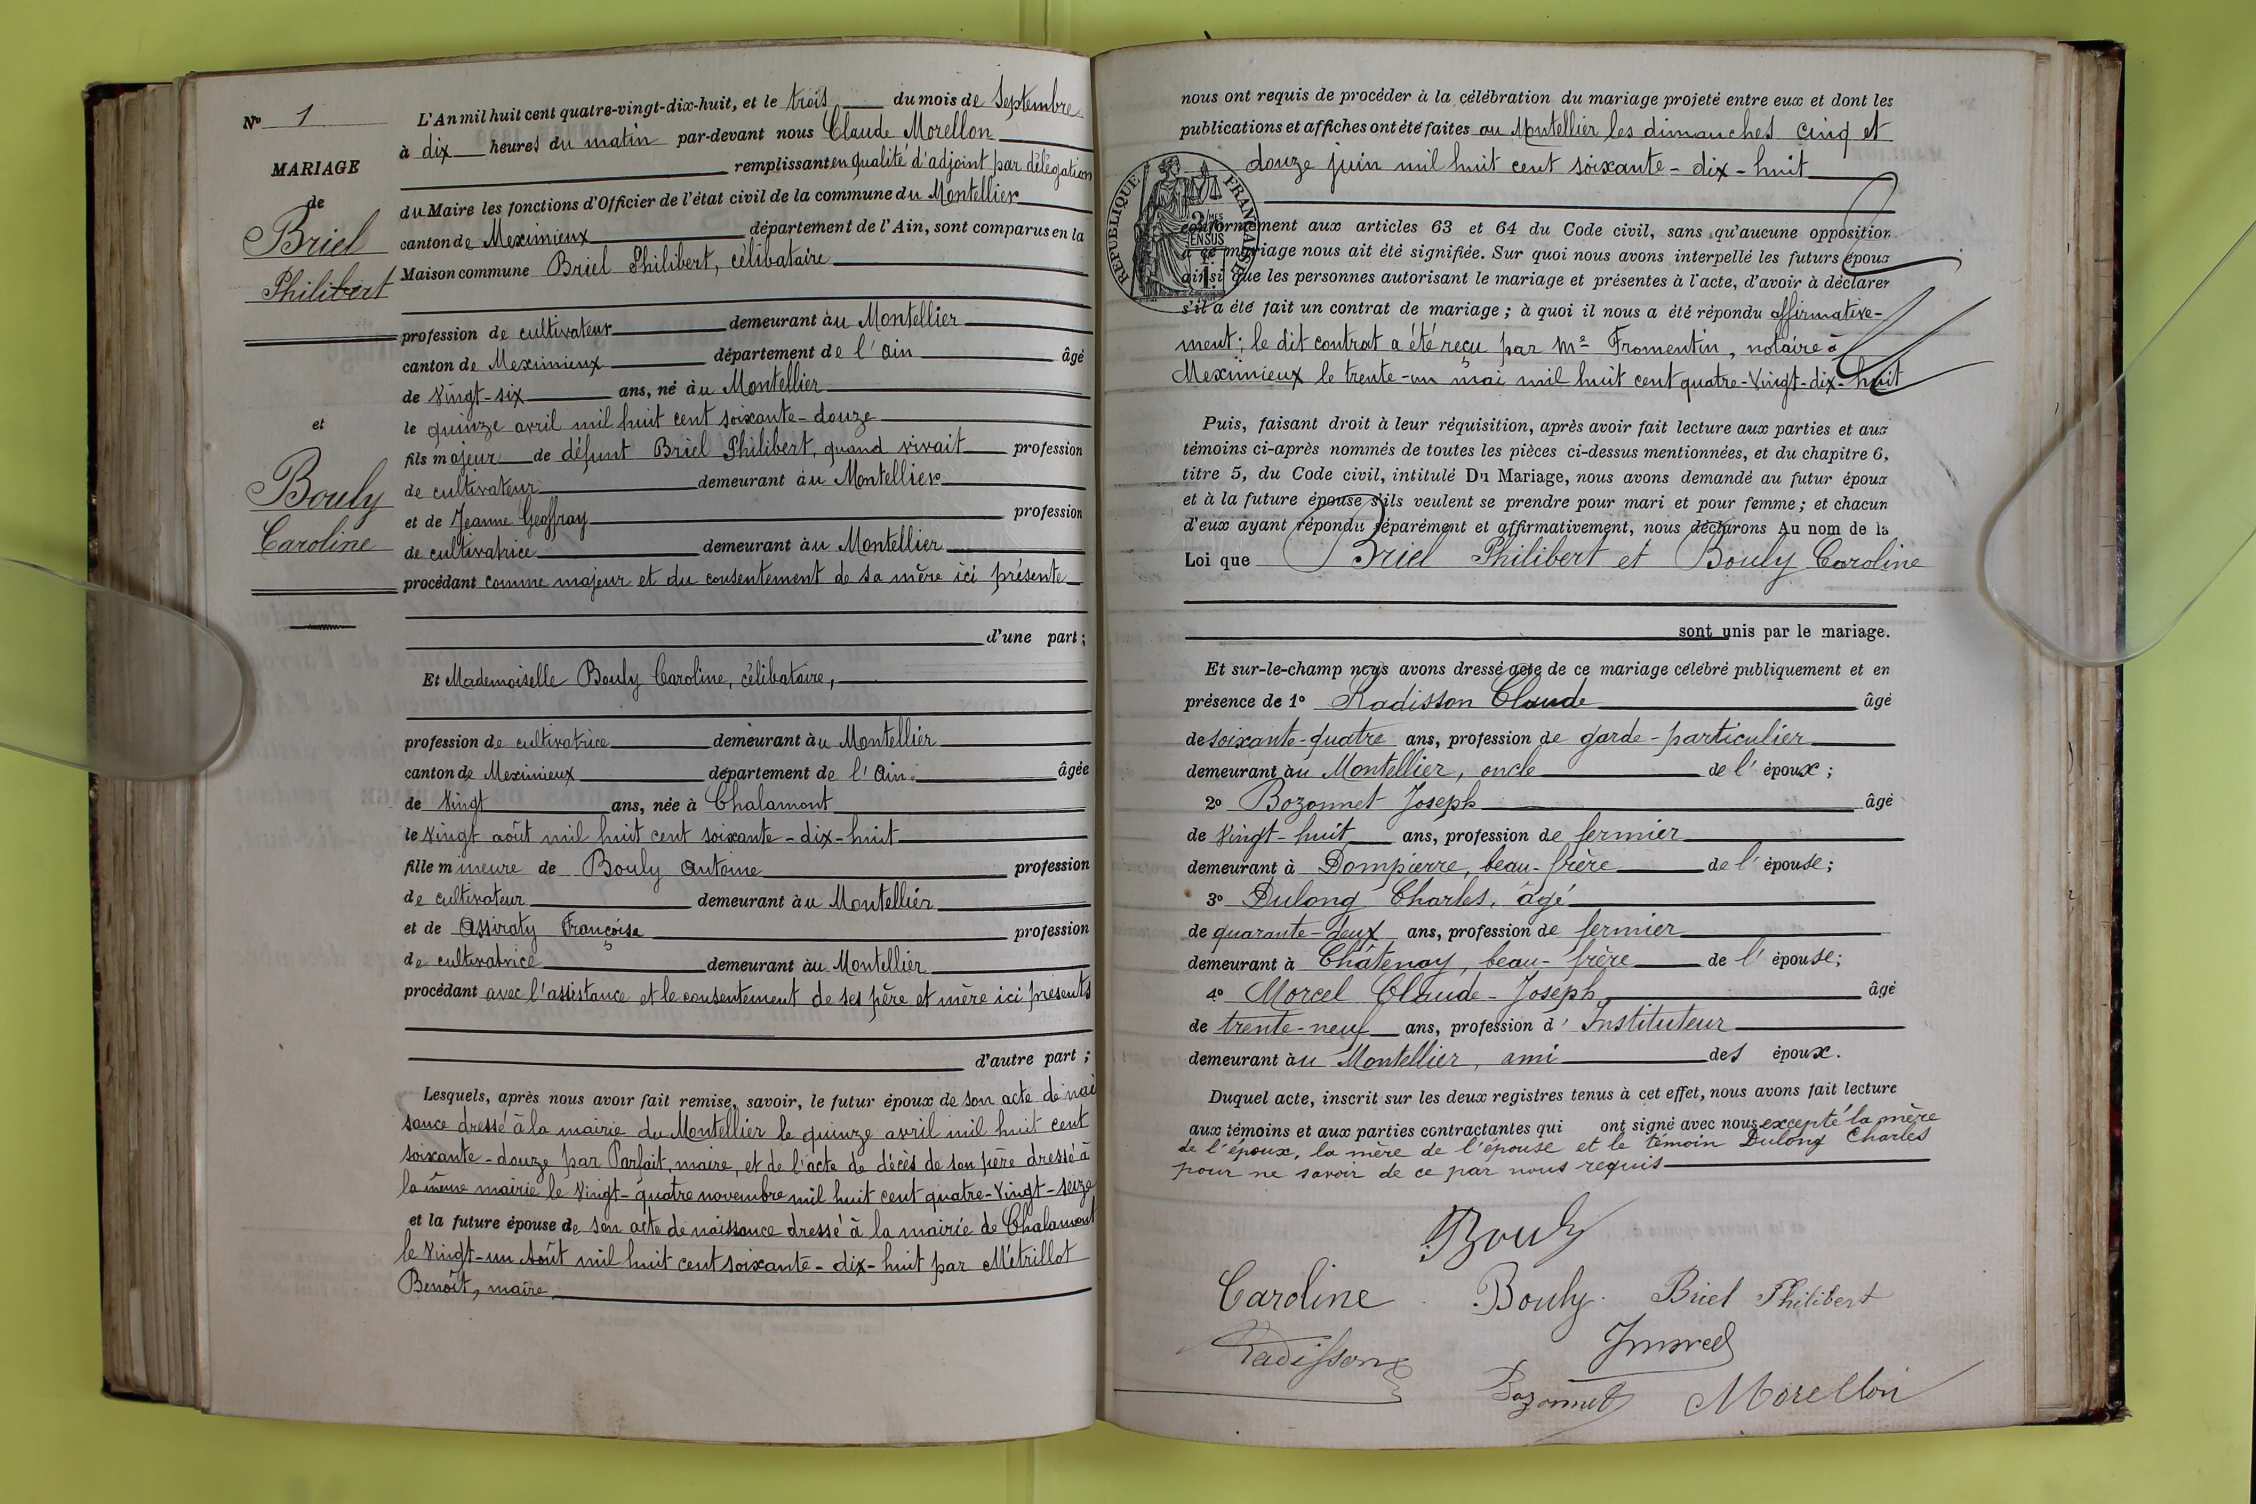 N° 1
MARIAGE
de
Briel
Philibert
et
Bouly
Caroline
L'An mil huit cent quatre-vingt-dix-huit, et le trois du mois de Septembre
à dix heures du matin par-devant nous Claude Morellon
remplissant en qualité d'adjoint par délégation
du Maire les fonctions d'Officier de l'état civil de la commune du Montellier
canton de Meximieux département de l'Ain, sont comparus en la
Maison commune Briel Philibert, célibataire
profession de cultivateur demeurant àu Montellier
canton de Meximieux département de l'Ain âgé
de vingt-six ans, né àu Montellier
le quinze avril mil huit cent soixante-douze
fils majeur de défunt Briel Philibert, quand vivait profession
de cultivateur demeurant àu Montellier
et de Jeanne Geoffray profession
de cultivatrice demeurant àu Montellier
procédant comme majeur et du consentement de sa mère ici présente
d'une part ;
Et Mademoiselle Bouly Caroline, célibataire,
profession de cultivatrice demeurant àu Montellier
canton de Meximieux département de l'Ain. âgée
de vingt ans, née à Chalamont
le vingt août mil huit cent soixante-dix-huit
fille mineure de Bouly Antoine profession
de cultivateur demeurant àu Montellier
et de Assiraty Françoise profession
de cultivatrice demeurant àu Montellier
procédant avec l'assistance et le consentement de ses père et mère ici présents
d'autre part ;
Lesquels, après nous avoir fait remise, savoir, le futur époux de son acte de nai
sance dressé à la mairie du Montellier le quinze avril mil huit cent
soixante-douze par Parfait, maire, et de l'acte de décès de son père dressé à
la même mairie le vingt-quatre novembre mil huit cent quatre-vingt-seize
et la future épouse de son acte de naissance dressé à la mairie de Chalamont
le vingt-un Août mil huit cent soixante-dix-huit par Métrillot
Benoît, maire
nous ont requis de procéder à la célébration du mariage projeté entre eux et dont les
publications et affiches ont été faites au Montellier les dimanches cinq et
douze juin mil huit cent soixante-dix-huit
REPUBLIQUE FRANÇAISE
conformément aux articles 63 et 64 du Code civil, sans qu'aucune opposition
à ce mariage nous ait été signifiée. Sur quoi nous avons interpellé les futurs époux
ainsi que les personnes autorisant le mariage et présentes à l'acte, d'avoir à déclarer
s'il a été fait un contrat de mariage ; à quoi il nous a été répondu affirmative-
ment ; le dit contrat a été reçu par Me Fromentin, notaire à
Meximieux le trente-un mai mil huit cent quatre-vingt-dix-huit
Puis, faisant droit à leur réquisition, après avoir fait lecture aux parties et aux
témoins ci-après nommés de toutes les pièces ci-dessus mentionnées, et du chapitre 6,
titre 5, du Code civil, intitulé Du Mariage, nous avons demandé au futur époux
et à la future épouse s'ils veulent se prendre pour mari et pour femme ; et chacun
d'eux ayant répondu séparément et affirmativement, nous déclarons Au nom de la
Loi que Briel Philibert et Bouly Caroline
sont unis par le mariage.
Et sur-le-champ nous avons dressé acte de ce mariage célébré publiquement et en
présence de 1° Radisson Claude âgé
de soixante-quatre ans, profession de garde-particulier
demeurant àu Montellier, oncle de l'époux ;
2° Bozonnet Joseph âgé
de vingt-huit ans, profession de fermier
demeurant à Dompierre, beau-frère de l'épouse ;
3° Dulong Charles, âgé
de quarante-deux ans, profession de fermier
demeurant à Châtenay, beau-frère de l'épouse ;
4° Morcel Claude-Joseph âgé
de trente-neuf ans, profession d'Instituteur
demeurant àu Montellier, ami des époux.
Duquel acte, inscrit sur les deux registres tenus à cet effet, nous avons fait lecture
aux témoins et aux parties contractantes qui ont signé avec nous excepté la mère
de l'époux, la mère de l'épouse et le témoin Dulong Charles
pour ne savoir de ce par nous requis
Bouly
Caroline Bouly Briel Philibert
Radisson Jmorcel
Bozonnet Morellon